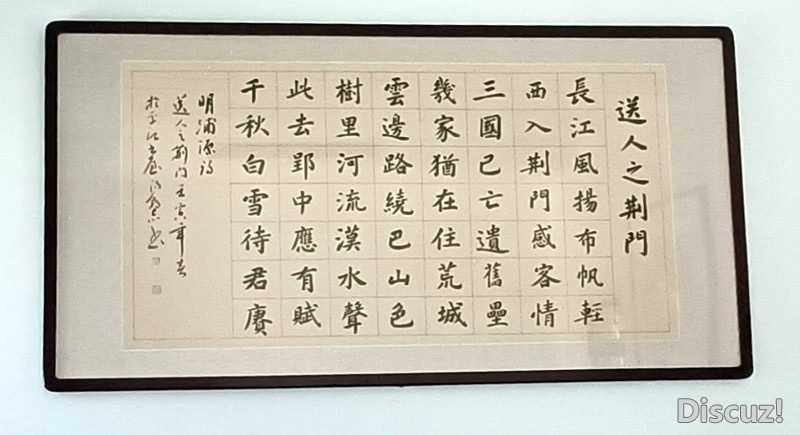 送人之荆門
長江風揚布帆軽
西入荆門感客情
三國已亡遺舊壘
幾家猶在住荒城
雲邊路繞巴山色
樹里河流漢水聲
此去郢中應有賦
千秋白雪待君賡
明浦源詩
送人之荆門壬寅年春
於平江
Discuz!